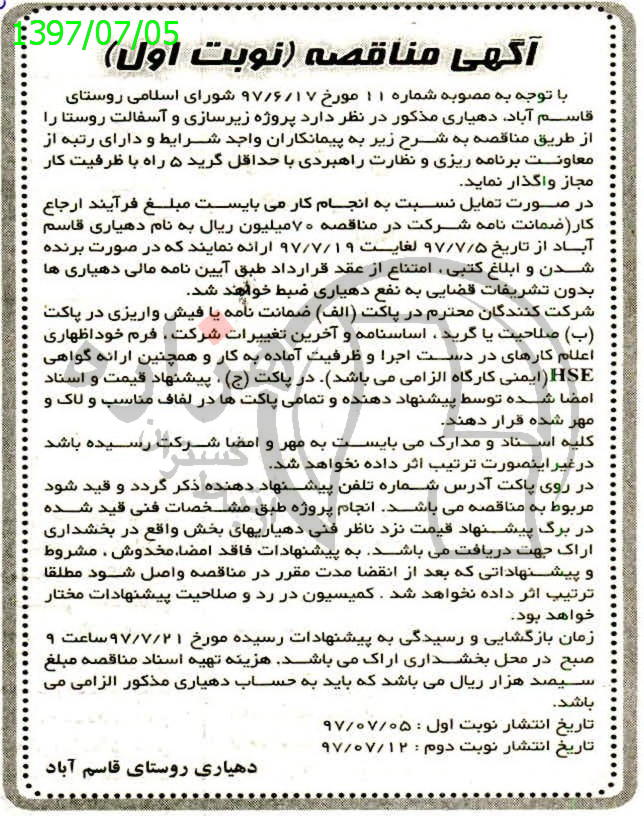 1397/07/05
آگهی مناقصه (نوبت اول)
با توجه به مصوبه شماره ۱۱ مورخ ۹۷/۶/۱۷ شورای اسلامی روستای
قاسم آباد، دهیاری مذکور در نظر دارد پروژه زیرسازی و آسفالت روستا را
از طریق مناقصه به شرح زیر به پیمانکاران واجد شرایط و دارای رتبه از
معاونت برنامه ریزی و نظارت راهبردی با حداقل گرید ۵ راه با ظرفیت کار
مجاز واگذار نماید.
در صورت تمایل نسبت به انجام کار می بایست مبلغ فرآیند ارجاع
کار(ضمانت نامه شرکت در مناقصه ۷۰میلیون ریال به نام دهیاری قاسم
آباد از تاریخ ۹۷/۷/۵ لغایت ۹۷/۷/۱۹ ارائه نمایند که در صورت برنده
شدن و ابلاغ کتبی ، امتناع از عقد قرارداد طبق آیین نامه مالی دهیاری ها
بدون تشریفات قضایی به نفع دهیاری ضبط خواهد شد.
شرکت کنندگان محترم در پاکت (الف) ضمانت نامه یا فیش واریزی در پاکت
(ب) صلاحیت یا گرید ، اساسنامه و آخرین تغییرات شرکت ، فرم خوداظهاری
اعلام کارهای در دست اجرا و ظرفیت آماده به کار و همچنین ارائه گواهی
HSE(ایمنی کارگاه الزامی می باشد). در پاکت (ج) ، پیشنهاد قیمت و اسناد
امضا شده توسط پیشنهاد دهنده و تمامی پاکت ها در لفاف مناسب و لاک و
مهر شده قرار دهند.
کلیه اسناد و مدارک می بایست به مهر و امضا شرکت رسیده باشد
درغیراینصورت ترتیب اثر داده نخواهد شد.
در روی پاکت آدرس شماره تلفن پیشنهاد دهنده ذکر گردد و قید شود
مربوط به مناقصه می باشد. انجام پروژه طبق مشخصات فنی قید شده
در برگ پیشنهاد قیمت نزد ناظر فنی دهیاریهای بخش واقع در بخشداری
اراک جهت دریافت می باشد. به پیشنهادات فاقد امضا،مخدوش ، مشروط
و پیشنهاداتی که بعد از انقضا مدت مقرر در مناقصه واصل شود مطلقا
ترتیب اثر داده نخواهد شد . کمیسیون در رد و صلاحیت پیشنهادات مختار
خواهد بود.
زمان بازگشایی و رسیدگی به پیشنهادات رسیده مورخ ۹۷/۷/۲۱ساعت ۹
صبح در محل بخشداری اراک می باشد. هزینه تهیه اسناد مناقصه مبلغ
سیصد هزار ریال می باشد که باید به حساب دهیاری مذکور الزامی می
باشد.
تاریخ انتشار نوبت اول : ۹۷/۰۷/۰۵
تاریخ انتشار نوبت دوم : ۹۷/۰۷/۱۲
دهیاری روستای قاسم آباد
هزاره